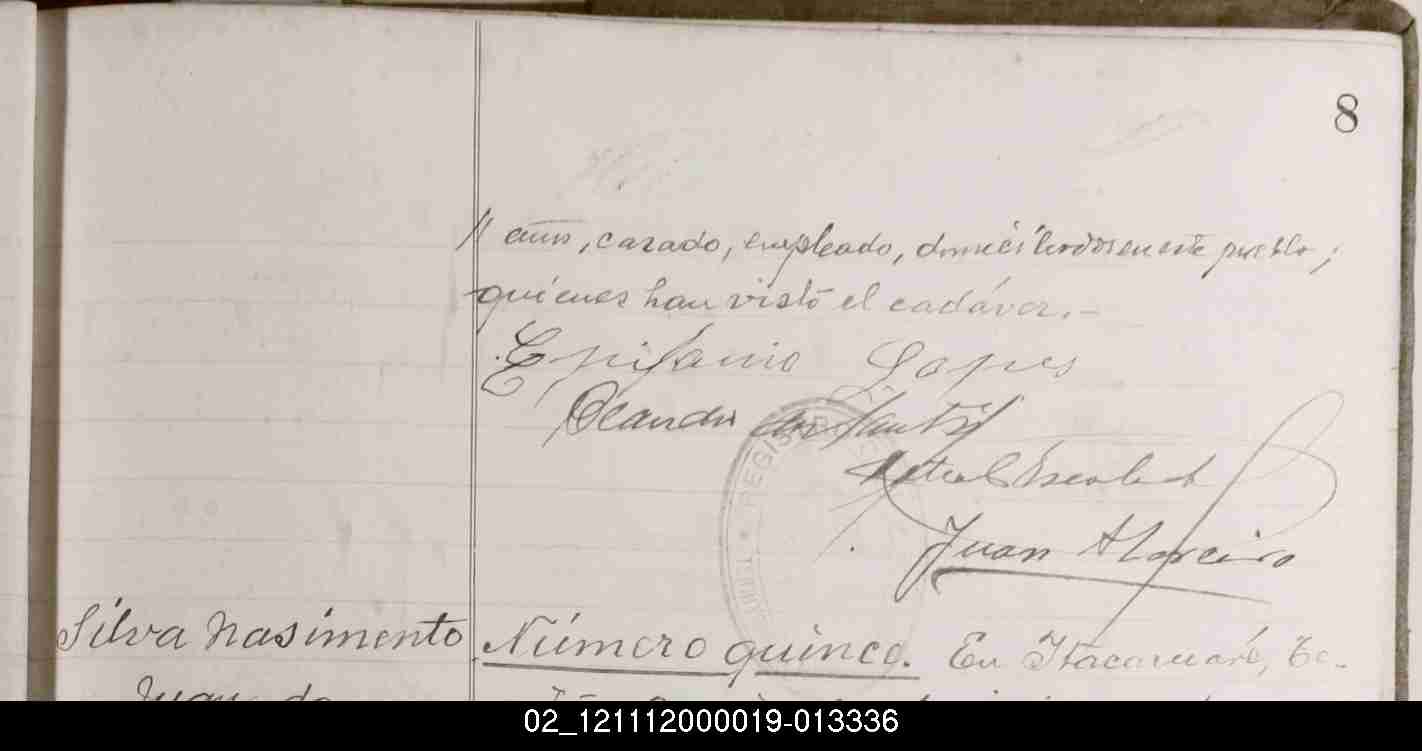 8
años, casado, empleado, domiciliados en este pueblo;
quienes han visto el cadáver.-
Epifanio Lopes
dos Santos
Juan
REGIS
Silva Nasimento
Número quince. En Itacaruaré, Te-
Juan da
02_121112000019-013336